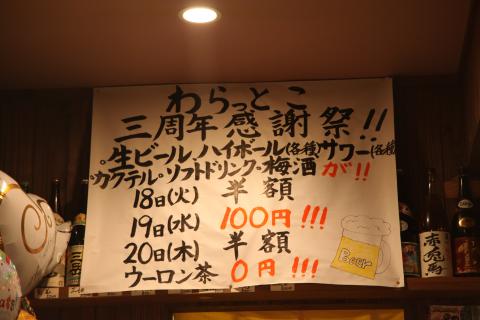 わらっとこ
三周年感謝祭!!
◦生ビール、ハイボール(各種)サワー(各種)
◦カクテル◦ソフトドリンク・梅酒 が!!
18日(火) 半額
19日(水) 100円!!!
20日(木) 半額
ウーロン茶 0円!!!
Beer
赤兎馬